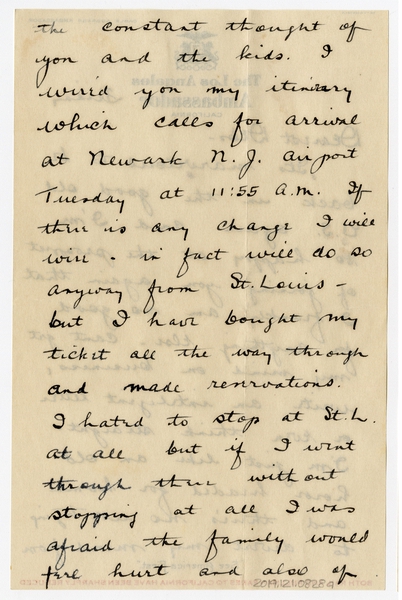 the constant thought of
you and the kids. I
wired you my itinerary
which calls for arrival
at Newark N. J. airport
Tuesday at 11:55 A.M. If
there is any change I will
wire - in fact will do so
anyway from St. Louis -
but I have bought my
ticket all the way through
and made reservations.
I hated to stop at St. L.
at all but if I went
through there without
stopping at all I was
afraid the family would
feel hurt and also of
2019.121.0828a